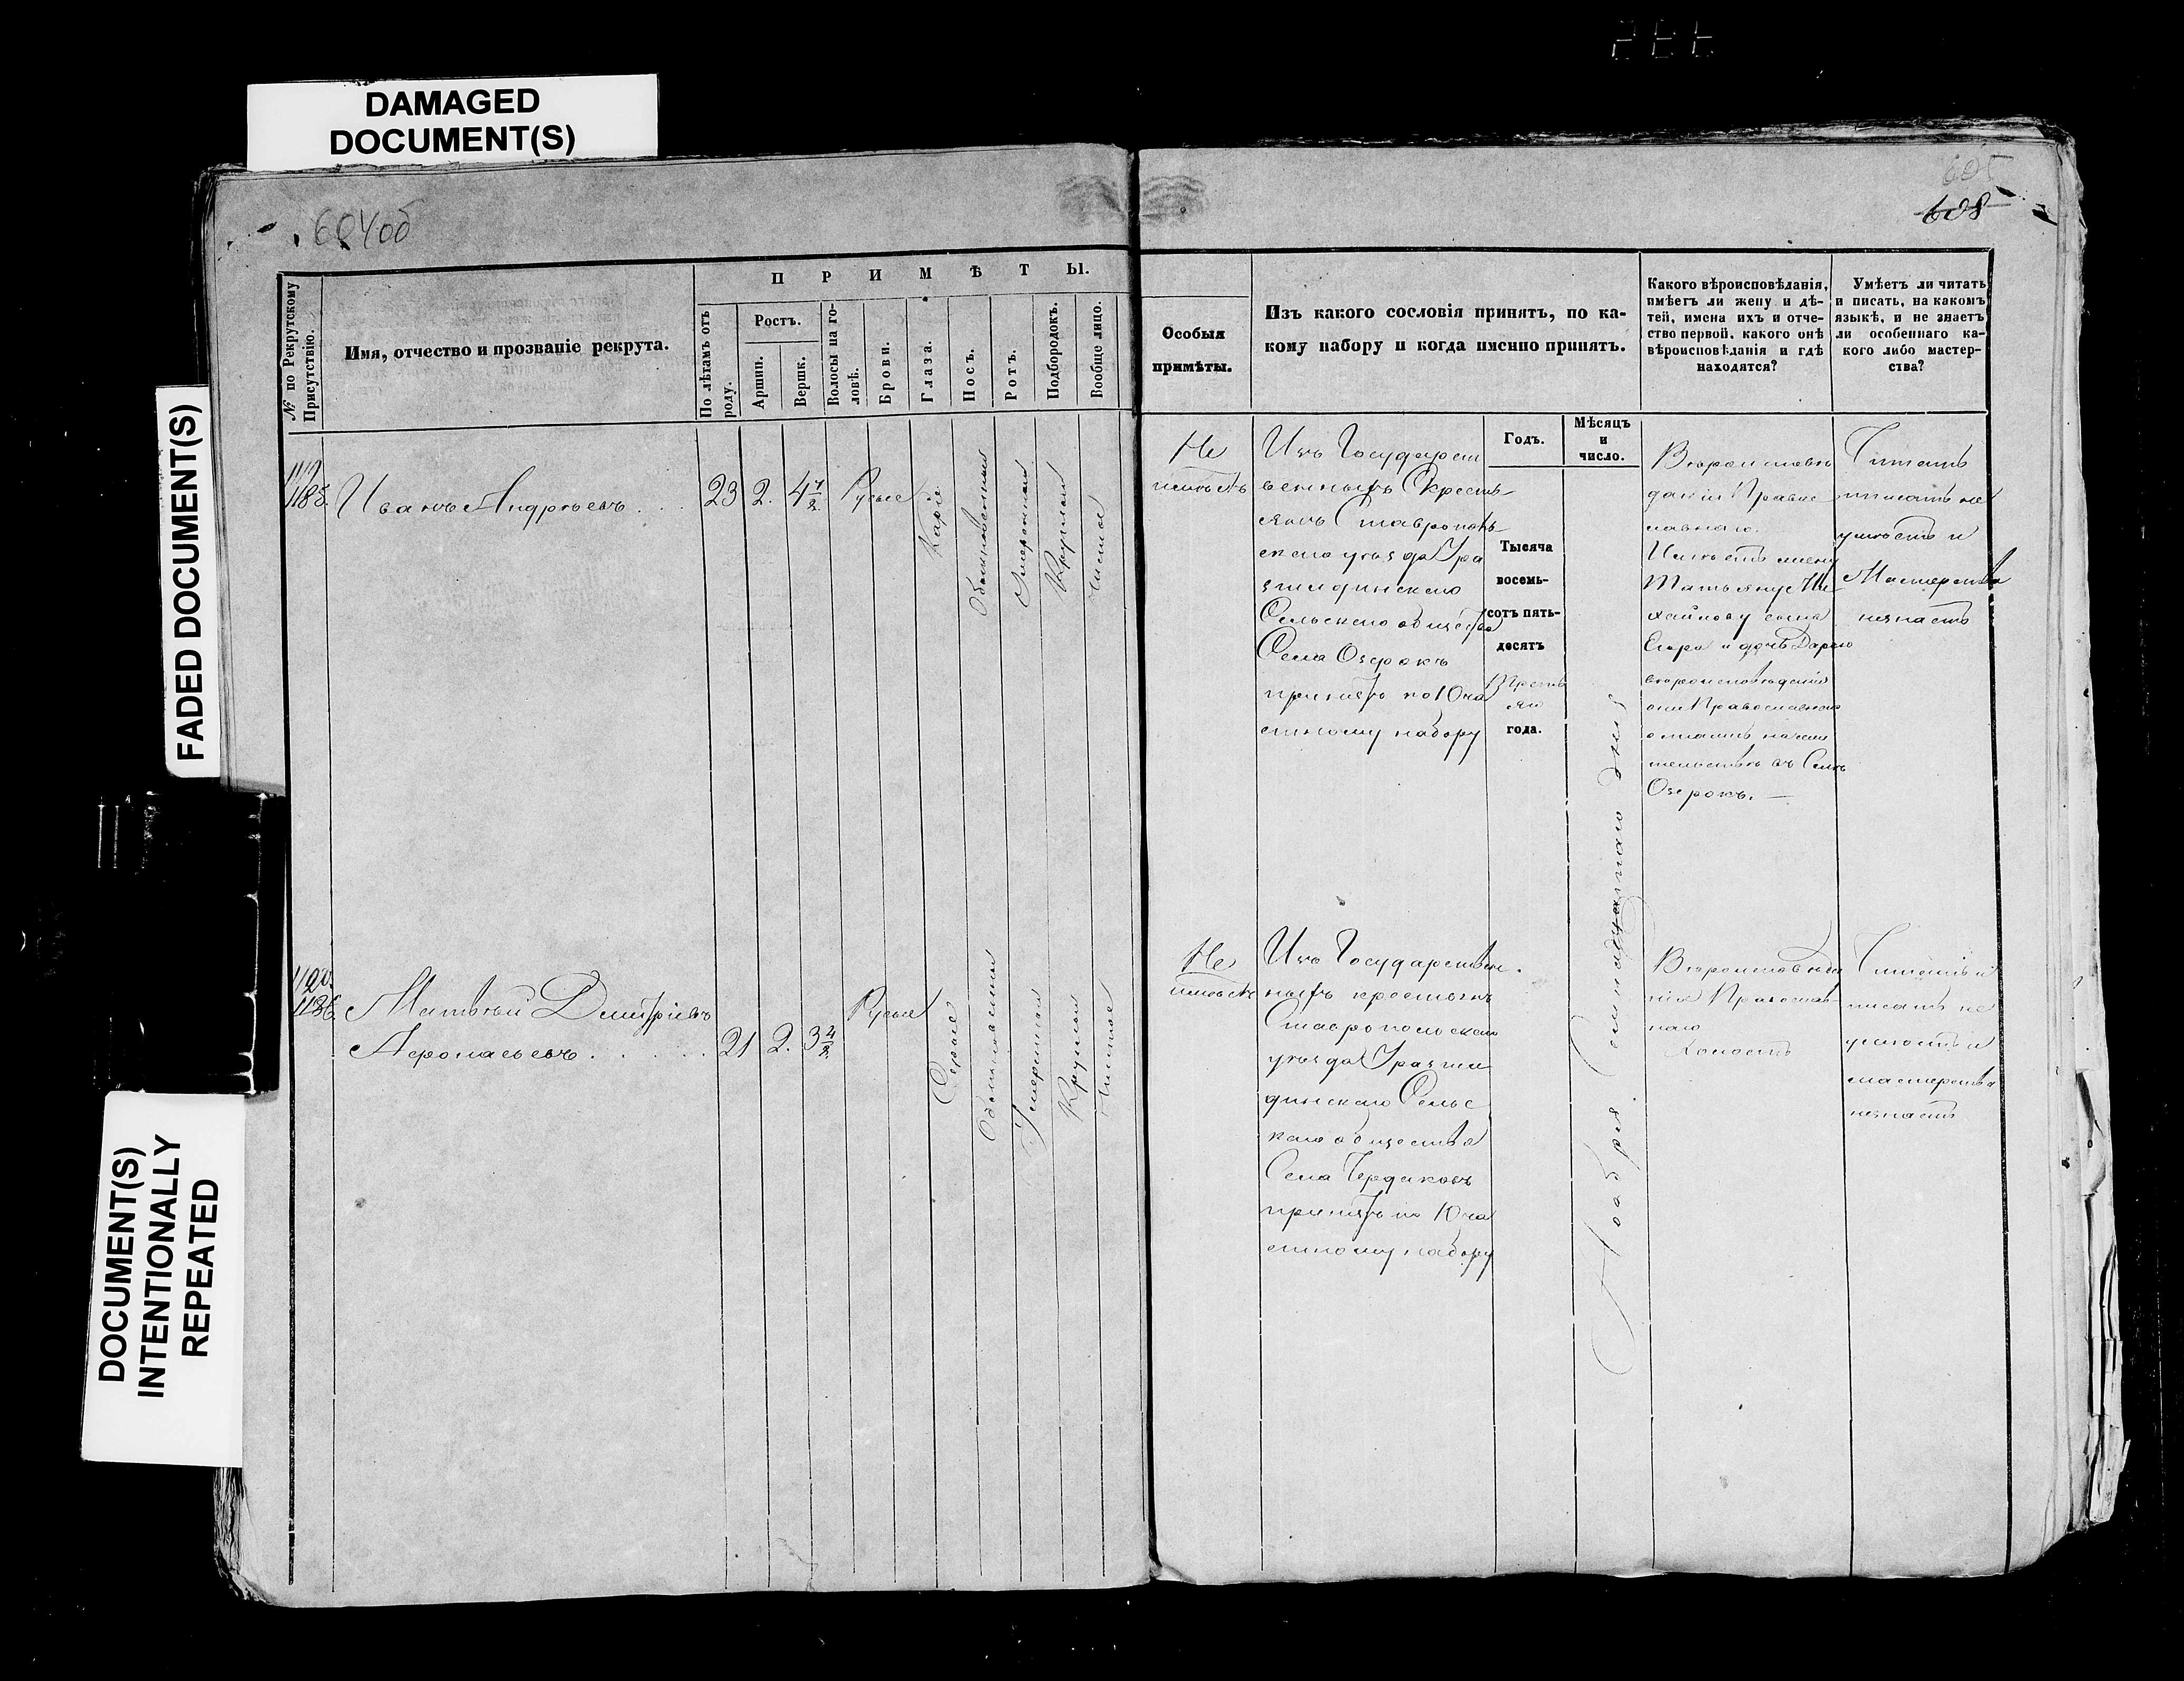 DAMAGED
DOCUMENT(S)
FADED DOCUMENT(S)
DOCUMENT(S)
INTENTIONALLY
REPEATED
604об
605
608
№ по Рекрутскому
Присутствію.
Имя, отчество и прозваніе рекрута.
ПРИМѢТЫ.
По лѣтамъ отъ
роду.
Ростъ.
Аршин.
Вершк.
Волосы на го-
ловѣ.
Брови.
Глаза.
Носъ.
Ротъ.
Подбородокъ.
Вообще лицо.
Особыя
примѣты.
Изъ какого сословія принятъ, по ка-
кому набору и когда именно принятъ.
Годъ.
Мѣсяцъ
и
число.
Какого вѣроисповѣданія,
имѣетъ ли жену и дѣ-
тей, имена ихъ и отче-
ство первой, какого онѣ
вѣроисповѣданія и гдѣ
находятся?
Умѣетъ ли читать
и писать, на какомъ
языкѣ, и не знаетъ
ли особеннаго ка-
кого либо мастер-
ства?
Иванъ Андреевъ
23
2.
4 1/2
Русые
Каріе
Обыкновенный
Умеренный
Круглый
Чистое
Не
имѣетъ
Изъ Государст
венныхъ Кресть-
янъ Ставрополь
скаго уѣзда
Сельскаго общества
Села Озерокъ
принятъ по 10 ча
стному набору
Тысяча
восемь-
сотъ пять-
десятъ
Третья
го
года.
Ноября
дня
Вероиспове
данія Правос
лавнаго.
Имѣетъ жену
Татьяну Ми
хайлову сына
Егора и дочь Дарью
вероисповеданія
они Православнаго
жи
тельствѣ въ Селѣ
Озерокъ. —
Читать
писать не
умѣетъ и
Мастерства
незнаетъ
1186
Матвѣй Дмитріевъ
21
2.
3 4/8
Русые
Серые
Обыкновенный
Умеренный
Круглый
Чистое
Не
имѣетъ
Изъ Государствен-
ныхъ крестьянъ
Ставропольскаго
уѣзда
динскаго Сельс
каго общества
Села Чердаковъ
принятъ по 10 ча
стному набору
Вероисповѣда
нія Православ-
наго
Холостъ
Читать и
писать не
умѣетъ и
мастерства
незнаетъ